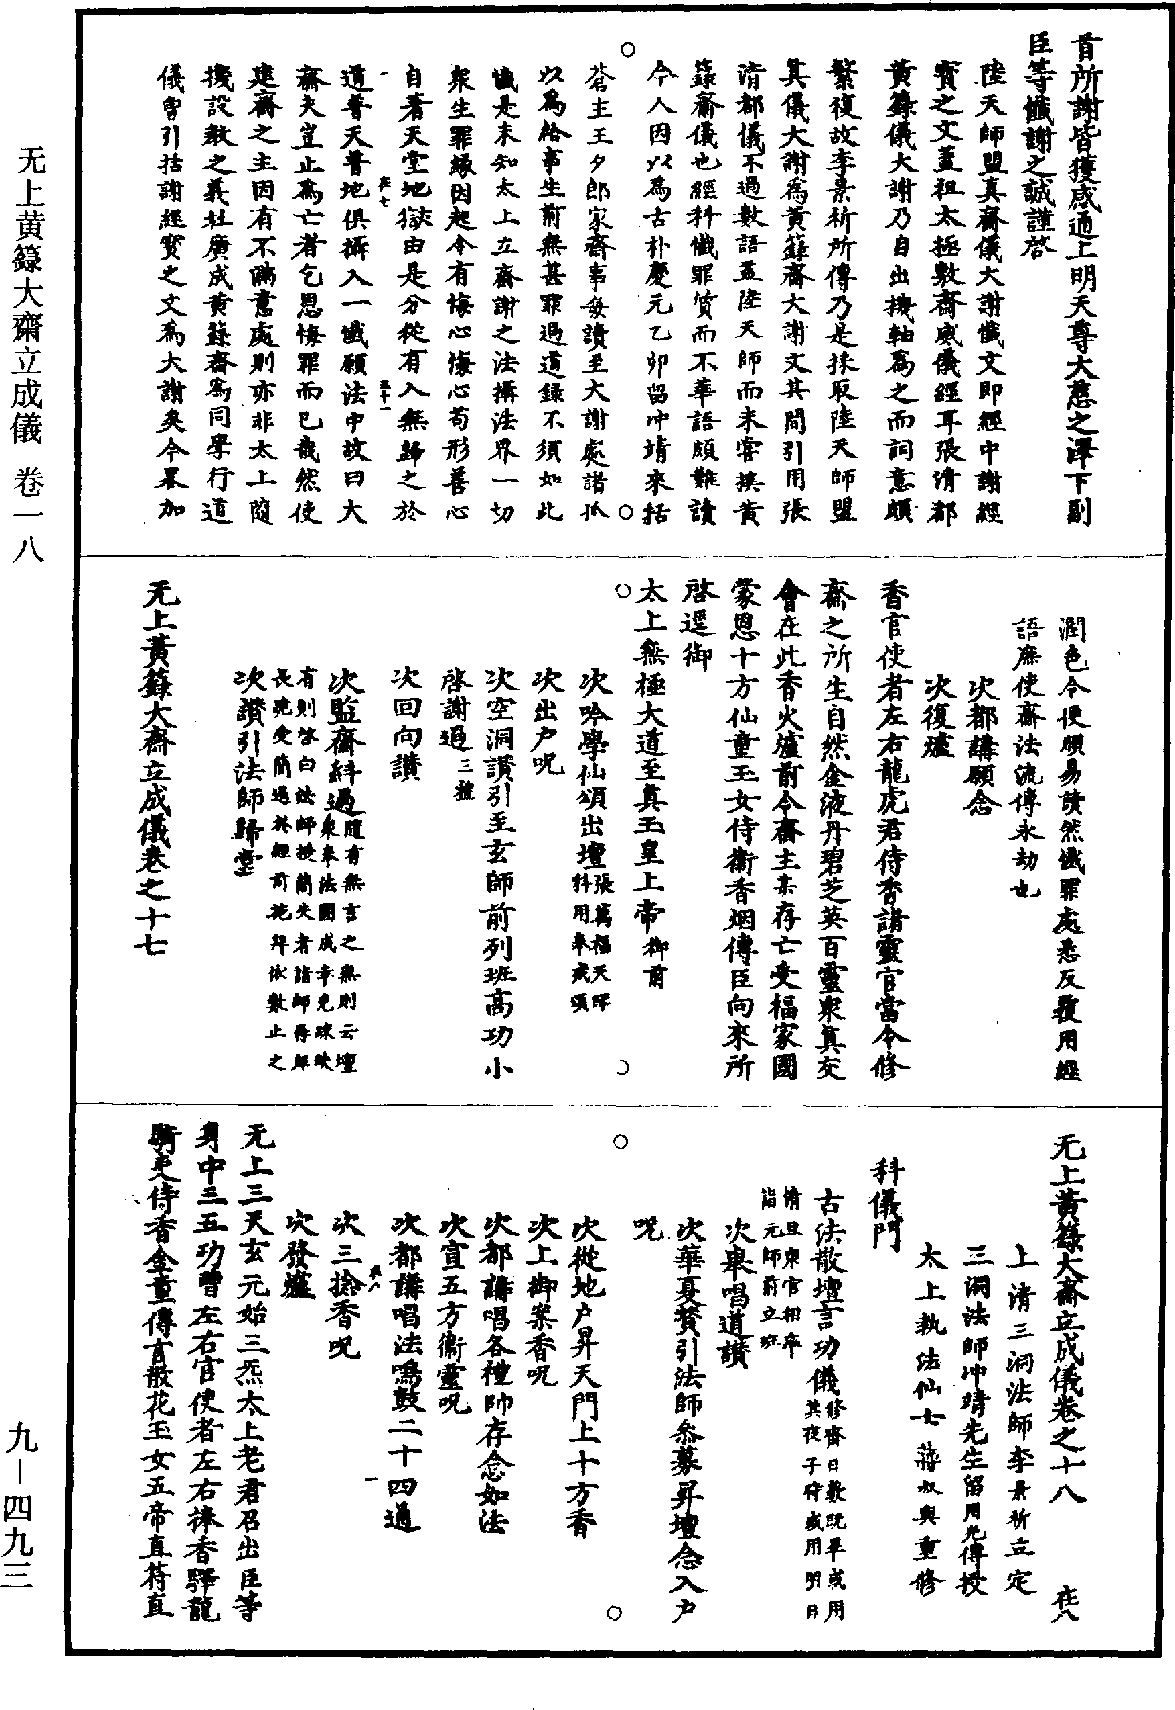 无上黄籙大齋立成儀 卷一八
九—四九三
首所謝皆獲感通上明天尊大慈之澤下副
臣等懺謝之誠謹啓
陸天師盟真齋儀大謝懺文即經中謝經
寶之文蓋祖太極敷齋威儀經耳張清都
黃籙儀大謝乃自出機軸爲之而詞意頗
繁復故李景祈所傳乃是採取陸天師盟
其儀大謝爲黃籙齋大謝文其間引用張
清都儀不過數語蓋陸天師而未嘗撰黃
籙齋儀也經科懺罪質而不華語頗難讀
今人因以爲古朴慶元乙卯留冲靖來括
蒼主王夕郎家齋事每讀至大謝處諸孤
以爲給事生前無甚罪過道錄不須如此
懺是未知太上立齋謝之法攝法界一切
衆生罪緣因起令有悔心悔心苟形善心
自著天堂地獄由是分從有入無歸之於
道普天普地俱攝入一懺願法中故曰大
齋夫豈止爲亡者乞恩悔罪而已哉然使
建齋之主因有不滿意處則亦非太上隨
機設教之義杜廣成黃籙齋爲同學行道
儀曾引括謝經寶之文爲大謝矣今畧加
潤色令便頗易讀然懺罪處悉反覆用經
語庶使齋法流傳永劫也
次都講願念
次復爐
香官使者左右龍虎君侍香諸靈官當令修
齋之所生自然金液丹碧芝英百靈衆真交
會在此香火爐前令齋主某存亡受福家國
蒙恩十方仙童玉女侍衛香烟傳臣向來所
啓逕御
太上無極大道至真玉皇上帝御前
次吟學仙頌出壇張萬福天師科用奉戒頌
次出户呪
次空洞讚引至玄師前列班高功小
啓謝過三禮
次回向讚
次監齋糾過隨有無言之無則云壇衆奉法圓成幸免疎缺
有則啓白法師授簡失者詣師得解
長跪受簡過於經前燒拜依數止之
次讚引法師歸堂
无上黃籙大齋立成儀卷之十七
无上黃籙大齋立成儀卷之十八 在八
上清三洞法師李景祈立定
三洞法師冲靖先生留用光傳授
太上執法仙士蔣叔輿重修
科儀門
古法散壇言功儀修齋日數既畢或用其夜子時或用明日
清旦衆官相序
詣元師前立班
次舉唱道讚
次華夏贊引法師叅募昇壇念入户
呪
次從地户昇天門上十方香
次上御案香呪
次都講唱各禮師存念如法
次宣五方衛靈呪
次都講唱法鳴鼓二十四通
次三捻香呪
次發爐
无上三天玄元始三炁太上老君召出臣等
身中三五功曹左右官使者左右捧香驛龍
騎吏侍香金童傳言散花玉女五帝直符直